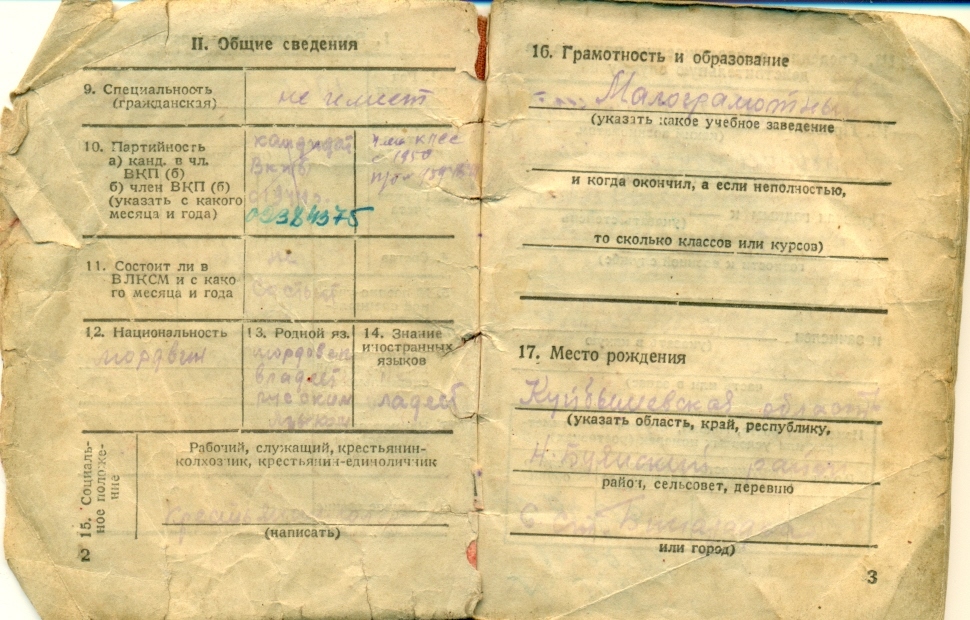 II. Общие сведения
9. Специальность
(гражданская)
не имеет
10. Партийность
а) канд. в чл.
ВКП (б)
б) член ВКП (б)
(указать с какого
месяца и года)
кандидат
ВКПб
член КПСС
с 1950
11. Состоит ли в
ВЛКСМ и с како-
го месяца и года
не
состоит
12. Национальность
мордвин
13. Родной яз.
мордовск
владеет
русским
языком
14. Знание
иностранных
языков
владеет
15. Социаль-
ное положе-
ние
Рабочий, служащий, крестьянин-
колхозник, крестьянин-единоличник
(написать)
2
16. Грамотность и образование
Малограмотный
(указать какое учебное заведение
и когда окончил, а если неполностью,
то сколько классов или курсов)
17. Место рождения
Куйбышевская область
(указать область, край, республику,
район
район, сельсовет, деревню
или город)
3